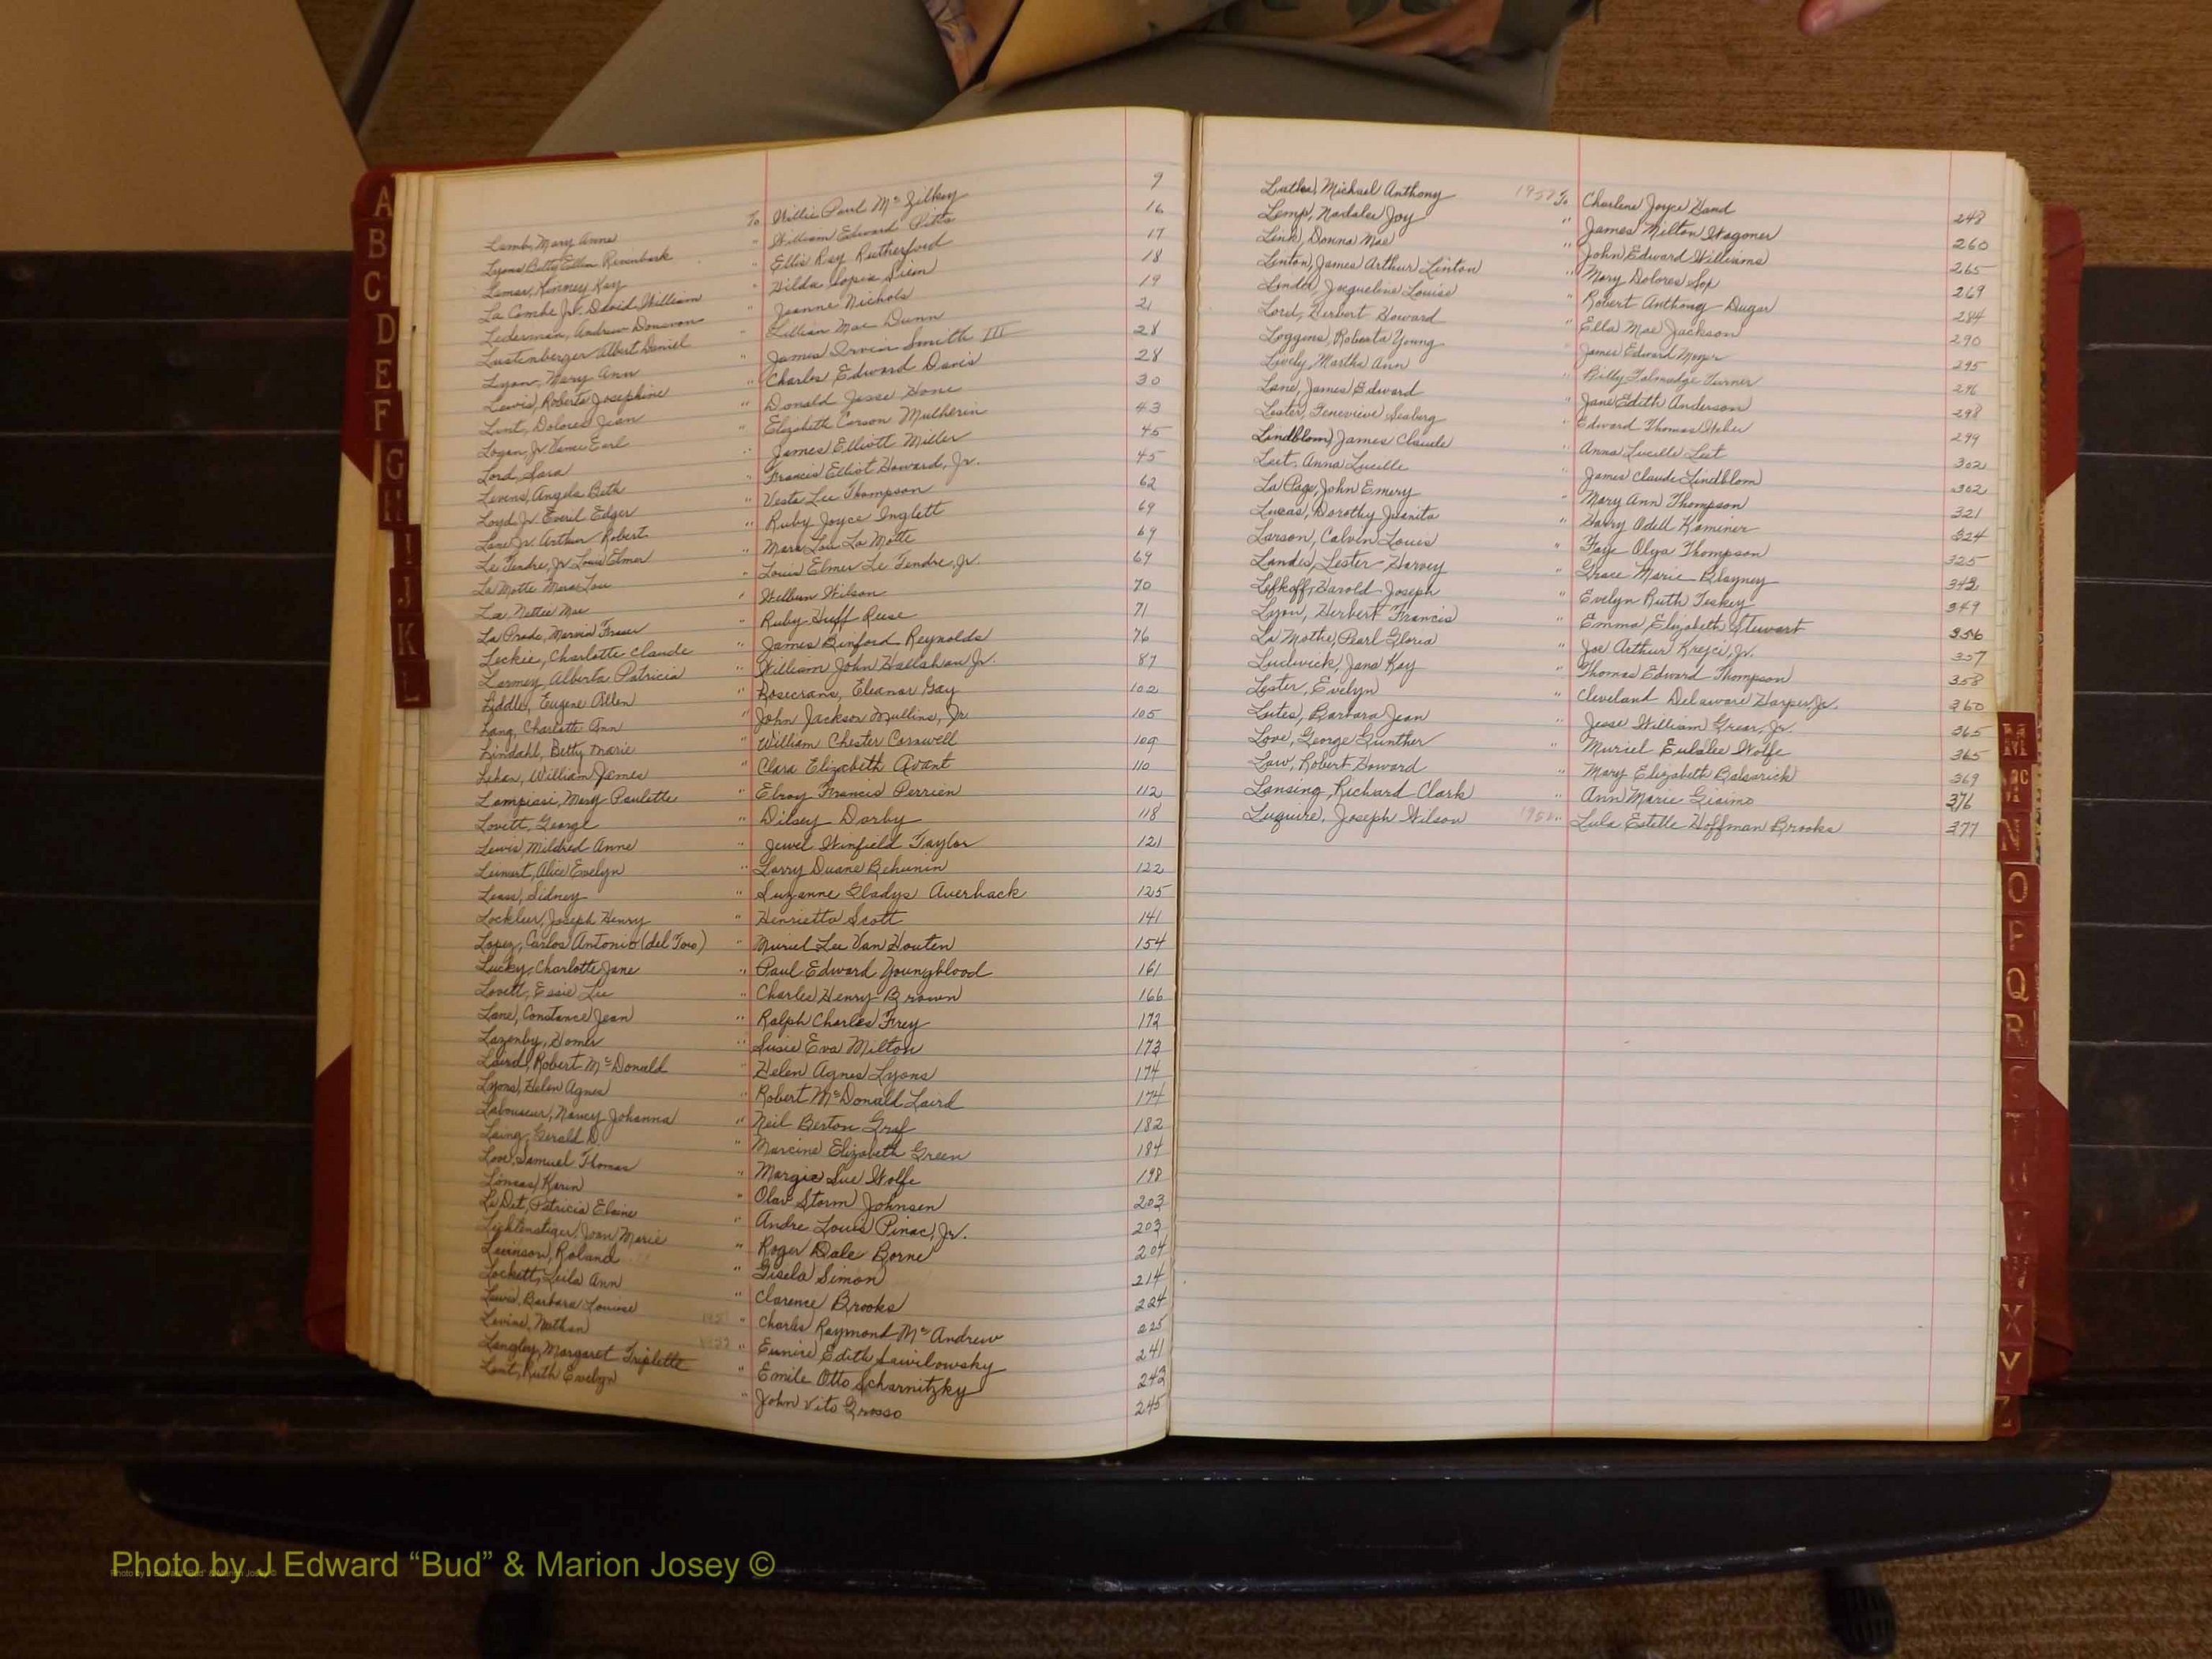 Lamb, Mary Anna To Willie Paul McGilkey 9
Lyons, Betty Ellen Rivenbark " William Edward Pitts 16
Lamar, Kinney Ray " Ellis Ray Rutherford 17
La Combe Jr., David William " Hilda Lopez Siem 18
Lederman, Andrew Donovan " Jeanne Nichols 19
Lustenberger, Albert Daniel " Lillian Mae Dunn 21
Lyon, Mary Ann " James Irvin Smith III 28
Lewis, Roberta Josephine " Charles Edward Davis 28
Lint, Dolores Jean " Donald Jesse Hone 30
Logan, Jr. Earl " Elizabeth Carson Mulherin 43
Lord, Sara " James Elliott Miller 45
Levens, Angela Beth " Francis Elliot Howard, Jr. 45
Loyd, Jr. Everil Edger " Vesta Lee Thompson 62
Lane, Jr. Arthur Robert " Ruby Joyce Inglett 69
Le Tendre, Jr. Louis Elmer " Mara Lou La Motte 69
La Motte, Mara Lou " Louis Elmer Le Tendre, Jr. 69
Lee, Nettie Mae " Wilburn Wilson 70
La Prade, Marvin Fraser " Ruby Huff Reese 71
Leckie, Charlotte Claude " James Binford Reynolds 76
Larmey, Alberta Patricia " William John Hallahan Jr. 87
Liddle, Eugene Allen " Rosecrans, Eleanor Gay 102
Lang, Charlotte Ann " John Jackson Mullins, Jr. 105
Lindahl, Betty Marie " William Chester Carswell 109
Lekan, William James " Clara Elizabeth Avant 110
Lampiasi, Mary Paulette " Elroy Francis Perrien 112
Lovett, George " Dilsey Darby 118
Lewis, Mildred Anne " Jewel Winfield Taylor 121
Leinert, Alice Evelyn " Larry Duane Behunin 122
Leass, Sidney " Suzanne Gladys Auerback 125
Locklier, Joseph Henry " Henrietta Scott 141
Lopez, Carlos Antonio (del Toro) " Muriel Lee Van Houten 154
Lucky, Charlotte Jane " Paul Edward Youngblood 161
Lovett, Essie Lee " Charles Henry Brown 166
Lane, Constance Jean " Ralph Charles Frey 172
Lazenby, Homer " Susie Eva Milton 173
Laird, Robert McDonald " Helen Agnes Lyons 174
Lyons, Helen Agnes " Robert McDonald Laird 174
Labusseur, Nancy Johanna " Neil Berton Graf 182
Laing, Gerald D. " Marcine Elizabeth Green 184
Love, Samuel Thomas " Margie Sue Wolfe 198
Lonsas, Karin " Olav Storm Johnsen 203
Le Det, Patricia Elaine " Andre Louis Pinac, Jr. 203
Lichtenstiger, Joan Marie " Roger Dale Borne 204
Levinson, Roland " Gisela Simon 214
Lockett, Leila Ann " Clarence Brooks 224
Lewis, Barbara Louise " Charles Raymond McAndrew 225
Levine, Nathan 1951 " Eunice Edith Sawilowsky 241
Langley, Margaret Triplette 1952 " Emile Otto Scharnitzky 243
Lent, Ruth Evelyn " John Vito Grosso 245
Michael Anthony 1952 To Charlene Joyce Hand 248
Lemp, Nadalee Joy " James Milton Wagoner 260
Link, Donna Mae " John Edward Williams 265
Linton, James Arthur Linton " Mary Dolores Sox 269
Linder, Jacqueline Louise " Robert Anthony Dugar 284
Lord, Herbert Howard " Ella Mae Jackson 290
Loggins, Roberta Young " James Edward Moyer 295
Lively, Martha Ann " Billy Talmadge Turner 296
Lane, James Edward " Jane Edith Anderson 298
Lester, Genevieve Seaberg " Edward Thomas Weber 299
Lindblom, James Claude " Anna Lucille List 302
List, Anna Lucille " James Claude Lindblom 302
La Page, John Emery " Mary Ann Thompson 321
Lucas, Dorothy Juanita " Harry Odell Kaminer 324
Larson, Calvin Louis " Faye Olya Thompson 325
Landes, Lester Harvey " Grace Marie Blayney 342
Lefkoff, Harold Joseph " Evelyn Ruth Teskey 349
Lyon, Herbert Francis " Emma Elizabeth Stewart 356
La Mothe, Pearl Gloria " Joe Arthur Krejci, Jr. 357
Ludwick, Jana Kay " Thomas Edward Thompson 358
Lester, Evelyn " Cleveland Delaware Harper, Jr. 360
Lutes, Barbara Jean " Jesse William Grear, Jr. 365
Love, George Gunther " Muriel Eulalee Wolfe 365
Law, Robert Howard " Mary Elizabeth Balsarick 369
Lansing, Richard Clark " Ann Marie Giaimo 376
Luquire, Joseph Wilson 1952 " Lula Estelle Hoffman Brooks 377
A
B
C
D
E
F
G
H
I
J
K
L
M
MC
N
O
P
Q
R
S
T
U
V
W
X
Y
Z
Photo by J Edward “Bud” & Marion Josey ©
Photo by J Edward "Bud" & Marion Josey ©